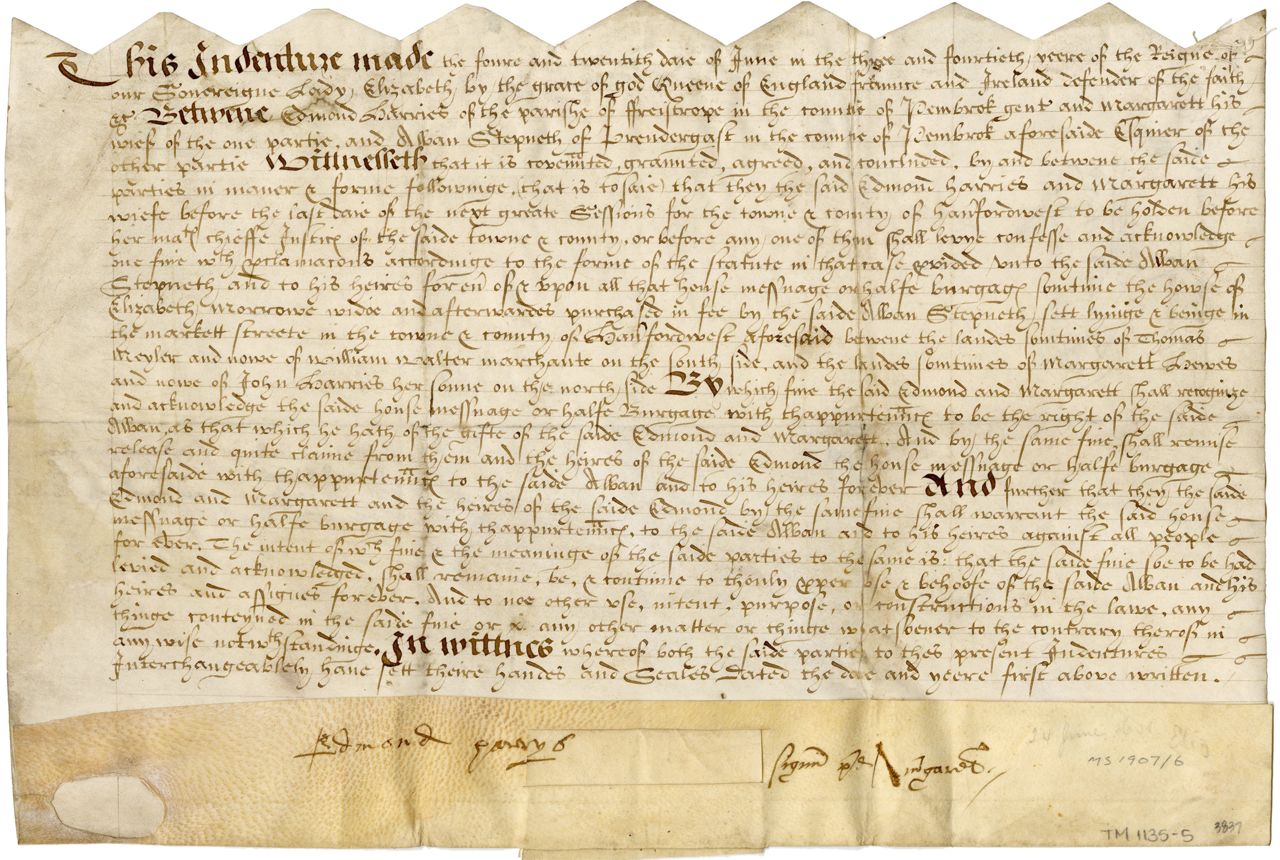 This Indenture made the foure and twentith daie of June in the three and fourtieth yeere of the Reigne of
our Sovereigne Lady Elizabeth by the grace of god Queene of England fraunce and Ireland defender of the faith
&c. Betwene Edmond Harries of the parishe of ffreistrope in the countie of Pembrok gent and Margarett his
wief of the one partie, and Alban Stepneth of Prendergast in the countie of Pembrok aforesaide Esquier of the
other partie Wittnesseth that it is covennted, graunted, agreed, and concluded, by and betwene the saide
parties in maner & forme followinge, (that is to saie) that they the said Edmond Harries and Margarett his
wiefe before the last daie of the next greate Sessions for the towne & county of Hanfordwest to be holden before
her matˢ chieffe Justicꝭ of the saide towne & county, or before any one of them shall levye confesse and acknowledge
one fine wth ꝓclamacons accordinge to the forme of the statute in that case ꝓvided, unto the saide Alban
Stepneth and to his heires forevʳ of & vpon all that house messuage or halfe burgagꝭ somtime the howse of
Elizabeth Morrowe widoe and afterwardes purchased in fee by the saide Alban Stepneth sett lyinge & beinge in
the markett streete in the towne & county of Hanfordwest aforesaid betwene the landes somtimes of Thomas
Meyler and nowe of William Walter marchante on the south side, and the landes somtimes of Margarett Hewes
and nowe of John Harries her sonne on the north side By which fine the said Edmond and Margarett shall recognize
and acknowledge the saide house messuage or halfe Burgage with thappurtennncꝭ to be the right of the saide
Alban, as that which he hath of the gifte of the saide Edmond and Margarett. And by the same fine shall remise
release and quite clame from them and the heires of the saide Edmond the house messuage or halfe burgage
aforesaide with thappurtennncꝭ to the saide Alban and to his heires forever And further that they the saide
Edmond and Margarett and the heires of the saide Edmond by the same fine shall warrant the said house
messuage or halfe burgage with thappurtennncꝭ, to the saide Alban and to his heires against all people
for ever. The intent of wch fine & the meaninge of the saide parties to the same is: that the saide fine soe to be had
levied and acknowledged, shall remaine, be, & continue to thonly ꝓper vse & behoofe of the saide Alban and his
heires and assignes forever. And to noe other vse, intent, purpose, or constructions in the lawe, any
thinge conteyned in the saide fine or any other matter or thinge whatsoever to the contrary therof in
any wise notwthstandinge. In wittnes whereof both the saide parties to thes present Indentures
Interchangeablely have sett theire handes and Seales Dated the daie and yeere first above written.
Edmand
signū pʳ Margarett
24 June 1601
MS 1907/6
TM 1135-5
3837